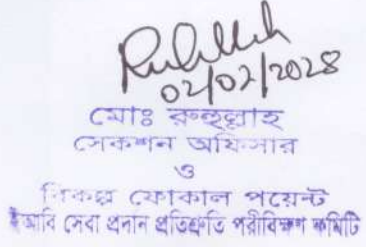 02/02/2028
মোঃ রুহুল্লাহ
সেকশন অফিসার
ও
বিকল্প ফোকাল পয়েন্ট
ইআবি সেবা প্রদান প্রতিশ্রুতি পরীবিক্ষণ কমিটি